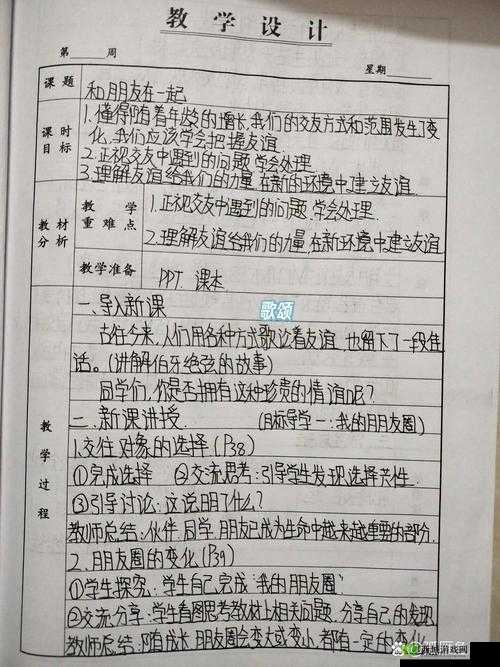 教学设计
第 周 星期
课题 和朋友在一起
课时目标 1.懂得随着年龄的增长,我们的交友方式和范围发生了变
化,我们应该学会把握友谊
2.正视交友中遇到的问题,学会处理
3.理解友谊给我们的力量,在新的环境中建立友谊
教材分析 教学重难点 1.正视交友中遇到的问题,学会处理.
2.理解友谊给我们的力量,在新环境中建立友谊
教学准备 PPT 课本
教学过程
一、导入新课
歌颂
古往今来,人们用各种方式歌讼着友谊,也留下了一段佳
话。(讲解伯牙绝弦的故事)
同学们,你是否拥有这种珍贵的情谊呢?
二、新课讲授 (目标导学一:我的朋友圈)
1.交往对象的选择(P38)
①完成选择 ②交流思考:引导学生发现选择共性.
③引导讨论:这说明了什么?
教师总结:伙伴,同学,朋友已成为生命中越来越重要的部分.
2.朋友圈的变化(P39)
①学生探究:学生自己完成"我的朋友圈"
②交流分享:学生看图思考教材上相关问题,分享自己的发现.
教师总结:随成长,朋友圈会变大或变小,都有一定的变化